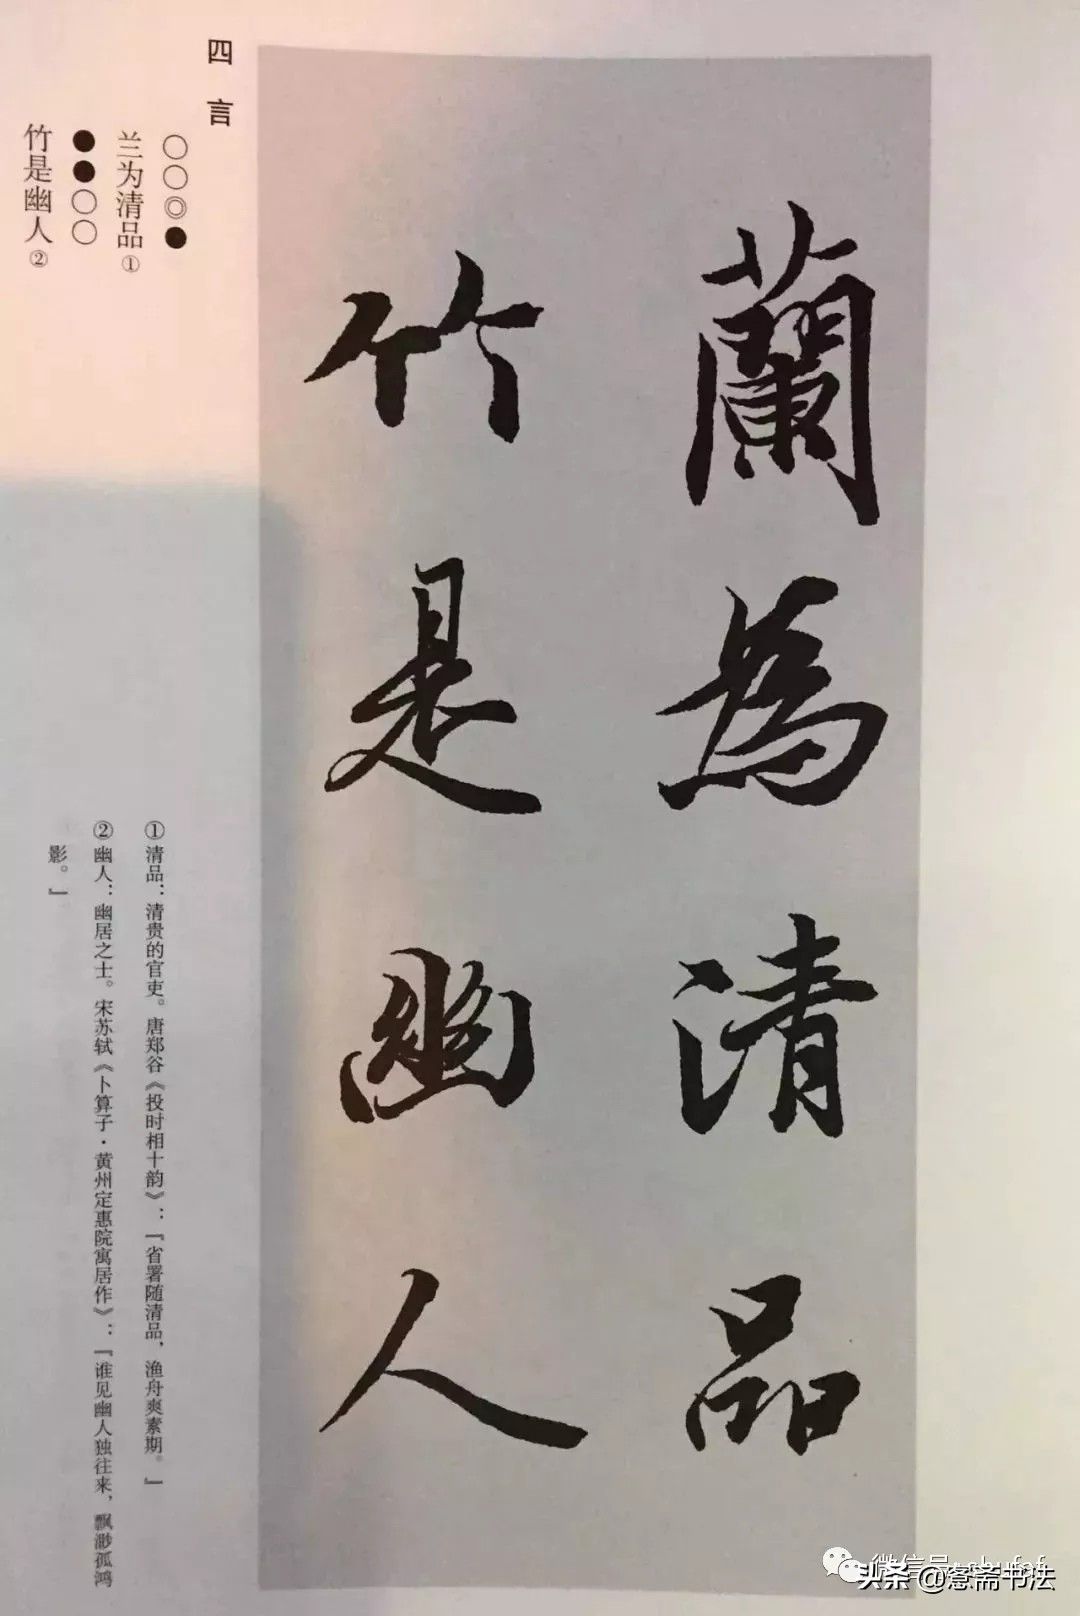 蘭為清品
竹是幽人
四言
○○◎●
兰为清品①
●●○○
竹是幽人②
①清品：清贵的官吏。唐郑谷《投时相十韵》：「省署随清品，渔舟爽素期。」
②幽人：幽居之士。宋苏轼《卜算子·黄州定惠院寓居作》：「谁见幽人独往来，飘渺孤鸿
影。」
微信号:shufaf
头条@薏斋书法